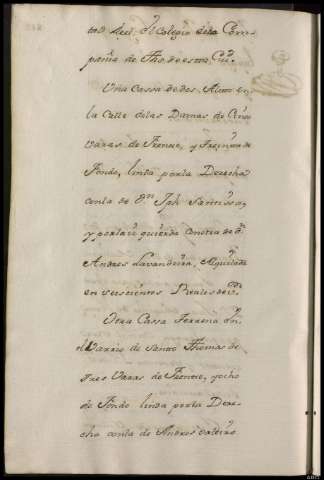 el Colegio de la Com-
pañia de Jhs de esta Ciu.d
Una Cassa de dos Altos en
la Calle de las Damas de Cinco
Varas de Frente, y treinta de
Fondo, linda por la Derecha
con la de Dn Jph Santisso,
y por la izquierda con otra de Dn
Andres Lavandeira, Alquilada
en seiscientos Reales de Vn
Otra Cassa Terrena En
el Varrio de Santo Thomas de
tres Varas de Frente, y ocho
de Fondo linda por la Dere-
cha con la de Andres